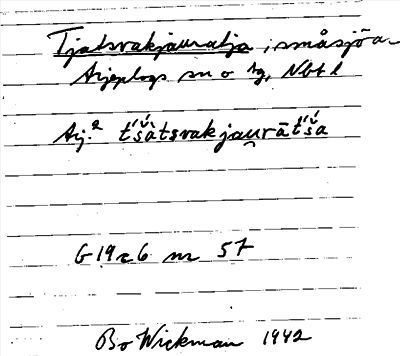 Tjatsvakjauratja, småsjöa
Arjeplogs sn o hg, Nbt l
Arj.² t́š́atsvakjau̯rāt́š́a
G 19 a 6 nr 57
Bo Wickman 1942